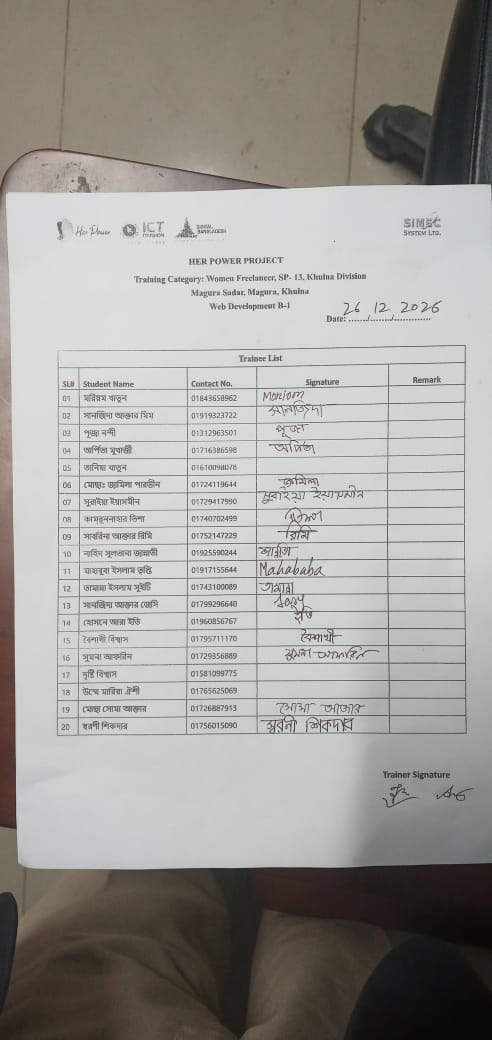 Her Power
ICT DIVISION
DIGITAL BANGLADESH
SIMEC
SYSTEM LTD.
HER POWER PROJECT
Training Category: Women Freelancer, SP- 13, Khulna Division
Magura Sadar, Magura, Khulna
Web Development B-1
Date: 26/12/2026
Trainee List
SL# Student Name Contact No. Signature Remark
01 মরিয়ম খাতুন 01843658962 Moriom
02 সানজিদা আক্তার মিম 01919323722 সানজিদা
03 পূজা নন্দী 01312963501 পূজা
04 অর্পিতা মুখার্জী 01716386598 অর্পিতা
05 তানিয়া খাতুন 01610098078
06 মোছাঃ জামিলা পারভীন 01724119644 জামিলা
07 সুরাইয়া ইয়াসমীন 01729417990 সুরাইয়া ইয়াসমীন
08 কামরুননাহার তিশা 01740702499 তিশা
09 সাবরিনা আক্তার রিমি 01752147229 রিমি
10 নাহিদ সুলতানা জান্নাতী 01925590244 জান্নাতী
11 মাহাবুবা ইসলাম তৃপ্তি 01917155644 Mahababa
12 তামান্না ইসলাম সুইটি 01743100089 তামান্না
13 সানজিদা আক্তার জেসি 01799296640
14 হোসনে আরা ইতি 01960856767 ইতি
15 বৈশাখী বিশ্বাস 01795711170 বৈশাখী
16 সুমনা আফরিন 01729356889 সুমনা আফরিন
17 দৃষ্টি বিশ্বাস 01581099775
18 উম্মে মারিয়া ঐশী 01765625069
19 মোছা সোমা আক্তার 01726887913 সোমা আক্তার
20 স্বরণী শিকদার 01756015090 স্বরনী শিকদার
Trainer Signature